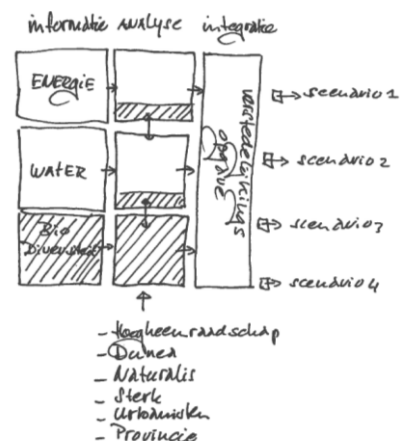 informatie ANALYSE integratie
ENERGIE
WATER
Bio
Diversiteit
verstedelijkings
opgave
scenario 1
scenario 2
scenario 3
scenario 4
- Hoogheemraadschap
- Dunea
- Naturalis
- Sterk
- Urbanisten
- Provincie